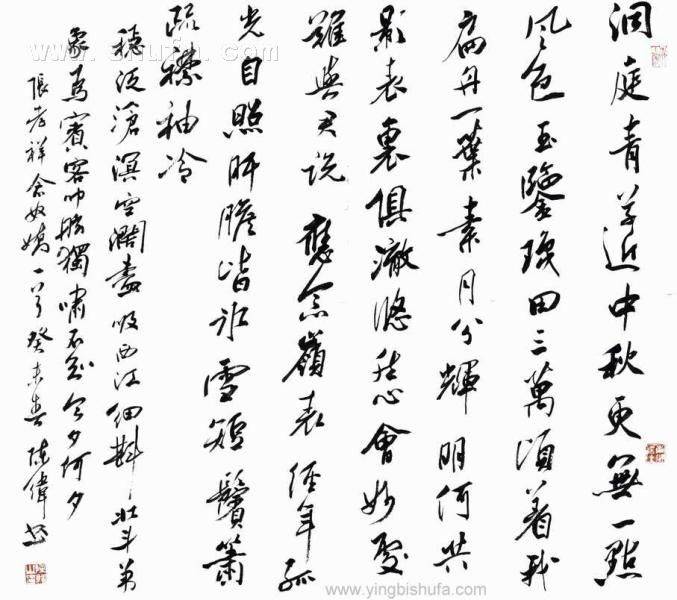 洞庭青草近中秋更無一點
風色玉鑒瓊田三萬頃着我
扁舟一葉素月分輝明河共
影表裏俱澈悠然心會妙處
難與君說 應念嶺表經年孤
光自照肝膽皆冰雪短鬢蕭
疏襟袖冷
穩泛滄溟空闊盡吸西江細斟北斗萬
象為賓客叩舷獨嘯不知今夕何夕
張孝祥念奴嬌一首癸未春陳偉書
www.yingbishufa.com